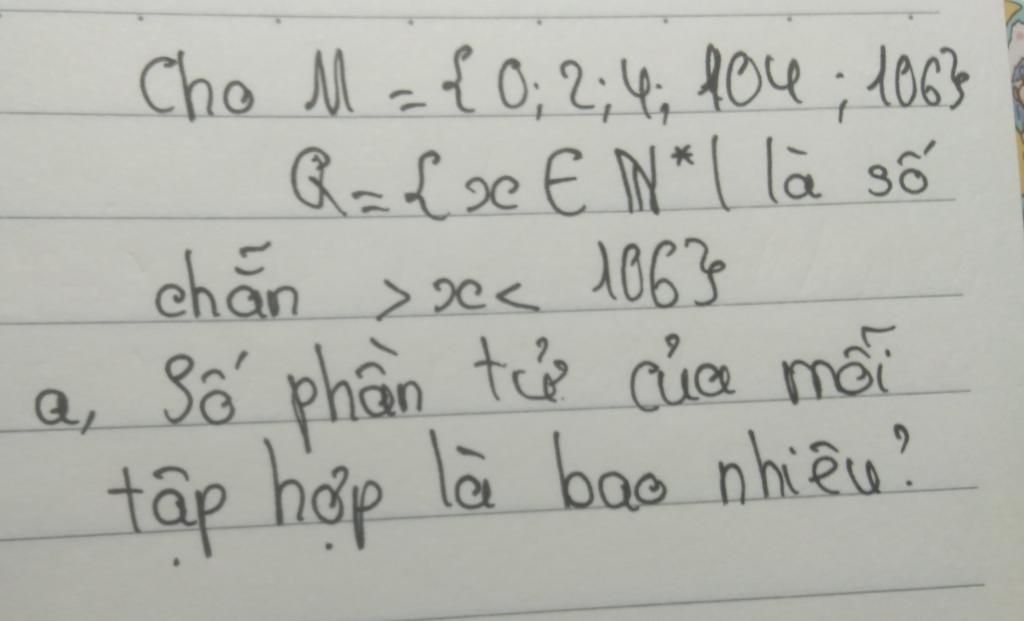 Cho M = { 0; 2; 4; 104 ; 106}
Q = { x ∈ ℕ* | là số
chẵn > x < 106}
a, Số phần tử của mỗi
tập hợp là bao nhiêu?